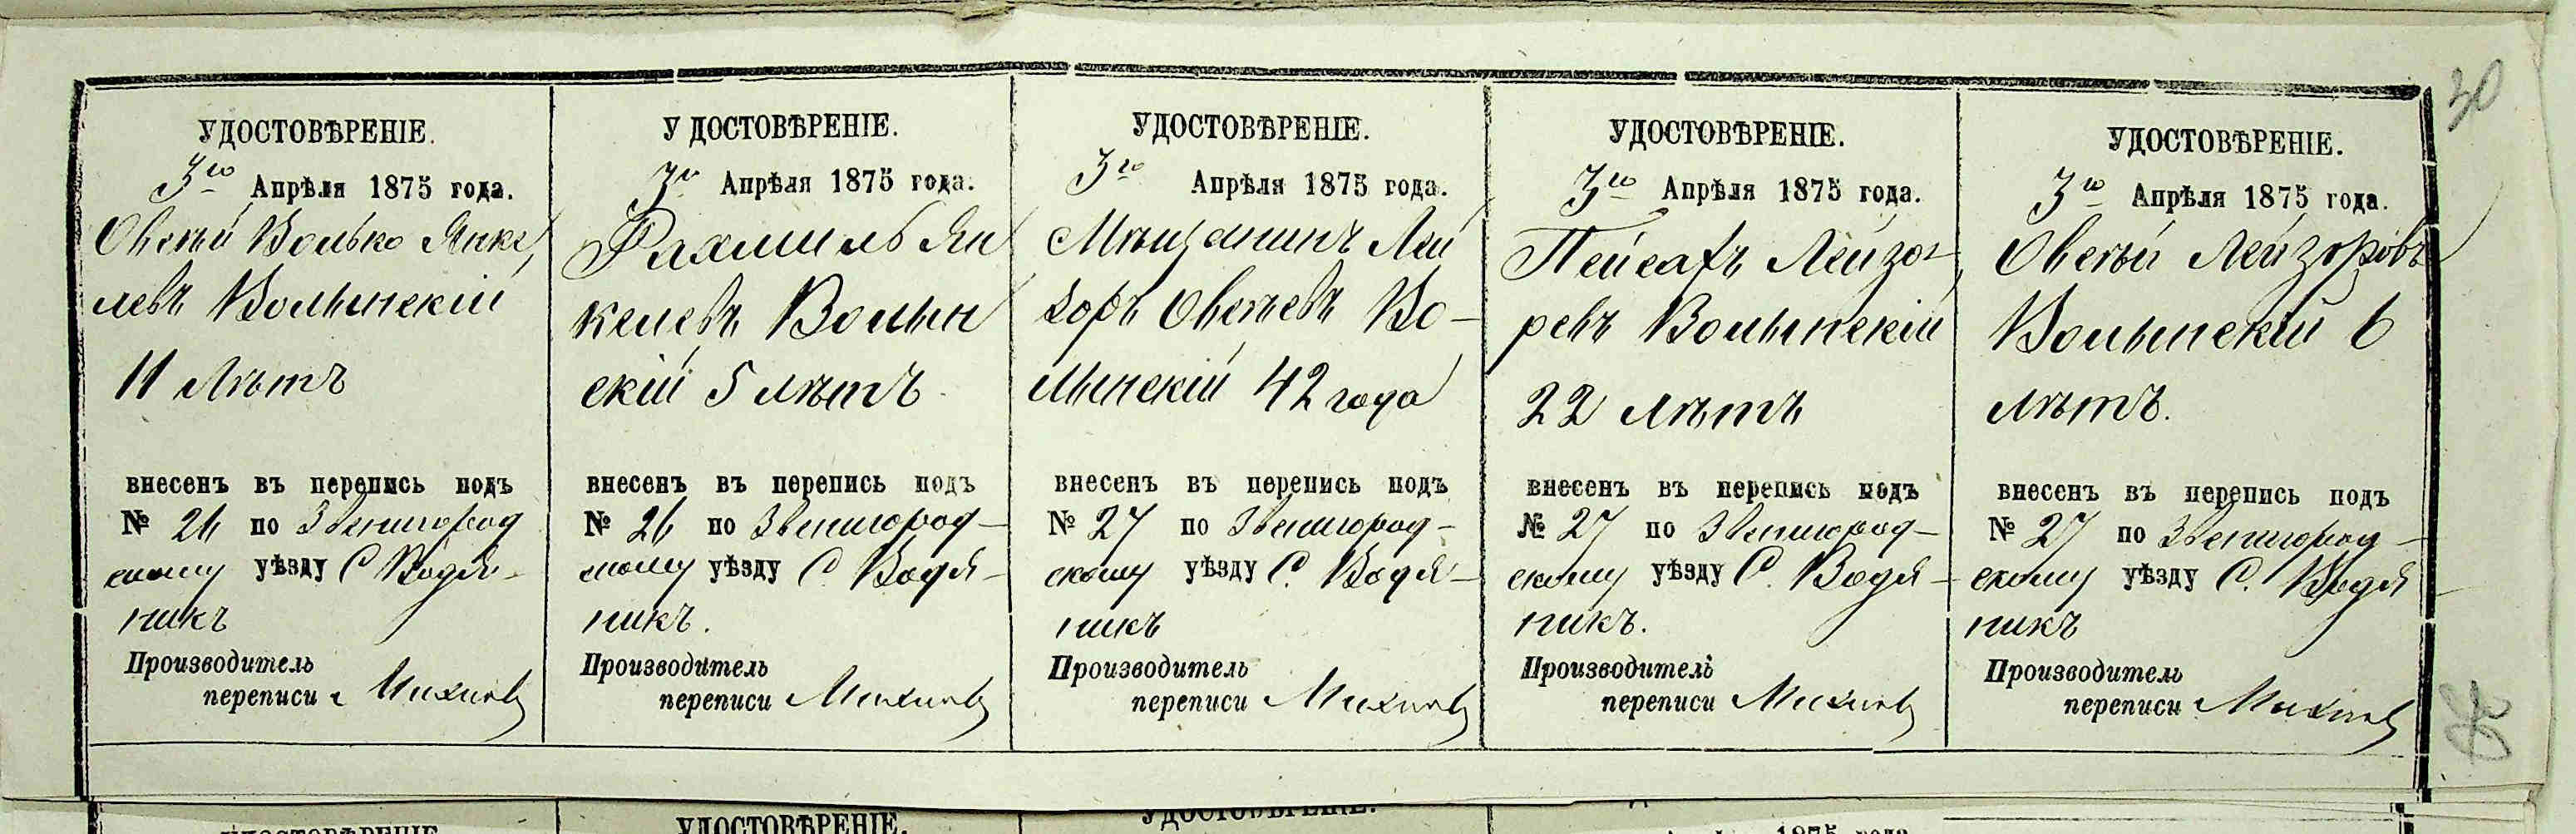 30
УДОСТОВѢРЕНІЕ.
3го Апрѣля 1875 года.
Овсѣй Волько Янке,
левъ Волынскій
11 Лѣтъ
внесенъ въ перепись подъ
№ 26 по Звенигород
скому уѣзду С Водя-
никъ
Производитель
переписи
УДОСТОВѢРЕНІЕ.
3го Апрѣля 1875 года.
Рахмиль Ян
келевъ Волын
скій 5 лѣтъ
внесенъ въ перепись подъ
№ 26 по Звенигород-
скому уѣзду С. Водя-
никъ.
Производитель
переписи
УДОСТОВѢРЕНІЕ.
3го Апрѣля 1875 года.
Мѣщанинъ Лей
зоръ Овсѣевъ Во-
лынскій 42 года
внесенъ въ перепись подъ
№ 27 по Звенигород-
скому уѣзду С. Водя-
никъ
Производитель
переписи
УДОСТОВѢРЕНІЕ.
3го Апрѣля 1875 года.
Пейсахъ Лейзо-
ревъ Волынскій
22 лѣтъ
внесенъ въ перепись подъ
№ 27 по Звенигород-
скому уѣзду С. Водя-
никъ.
Производитель
переписи
УДОСТОВѢРЕНІЕ.
3го Апрѣля 1875 года.
Овсѣй Лейзоровъ
Волынскій 6
лѣтъ.
внесенъ въ перепись подъ
№ 27 по Звенигород-
скому уѣзду С. Водя
никъ
Производитель
переписи
УДОСТОВѢРЕНІЕ.
УДОСТОВѢРЕНІЕ.
УДОСТОВѢРЕНІЕ.
1875 года